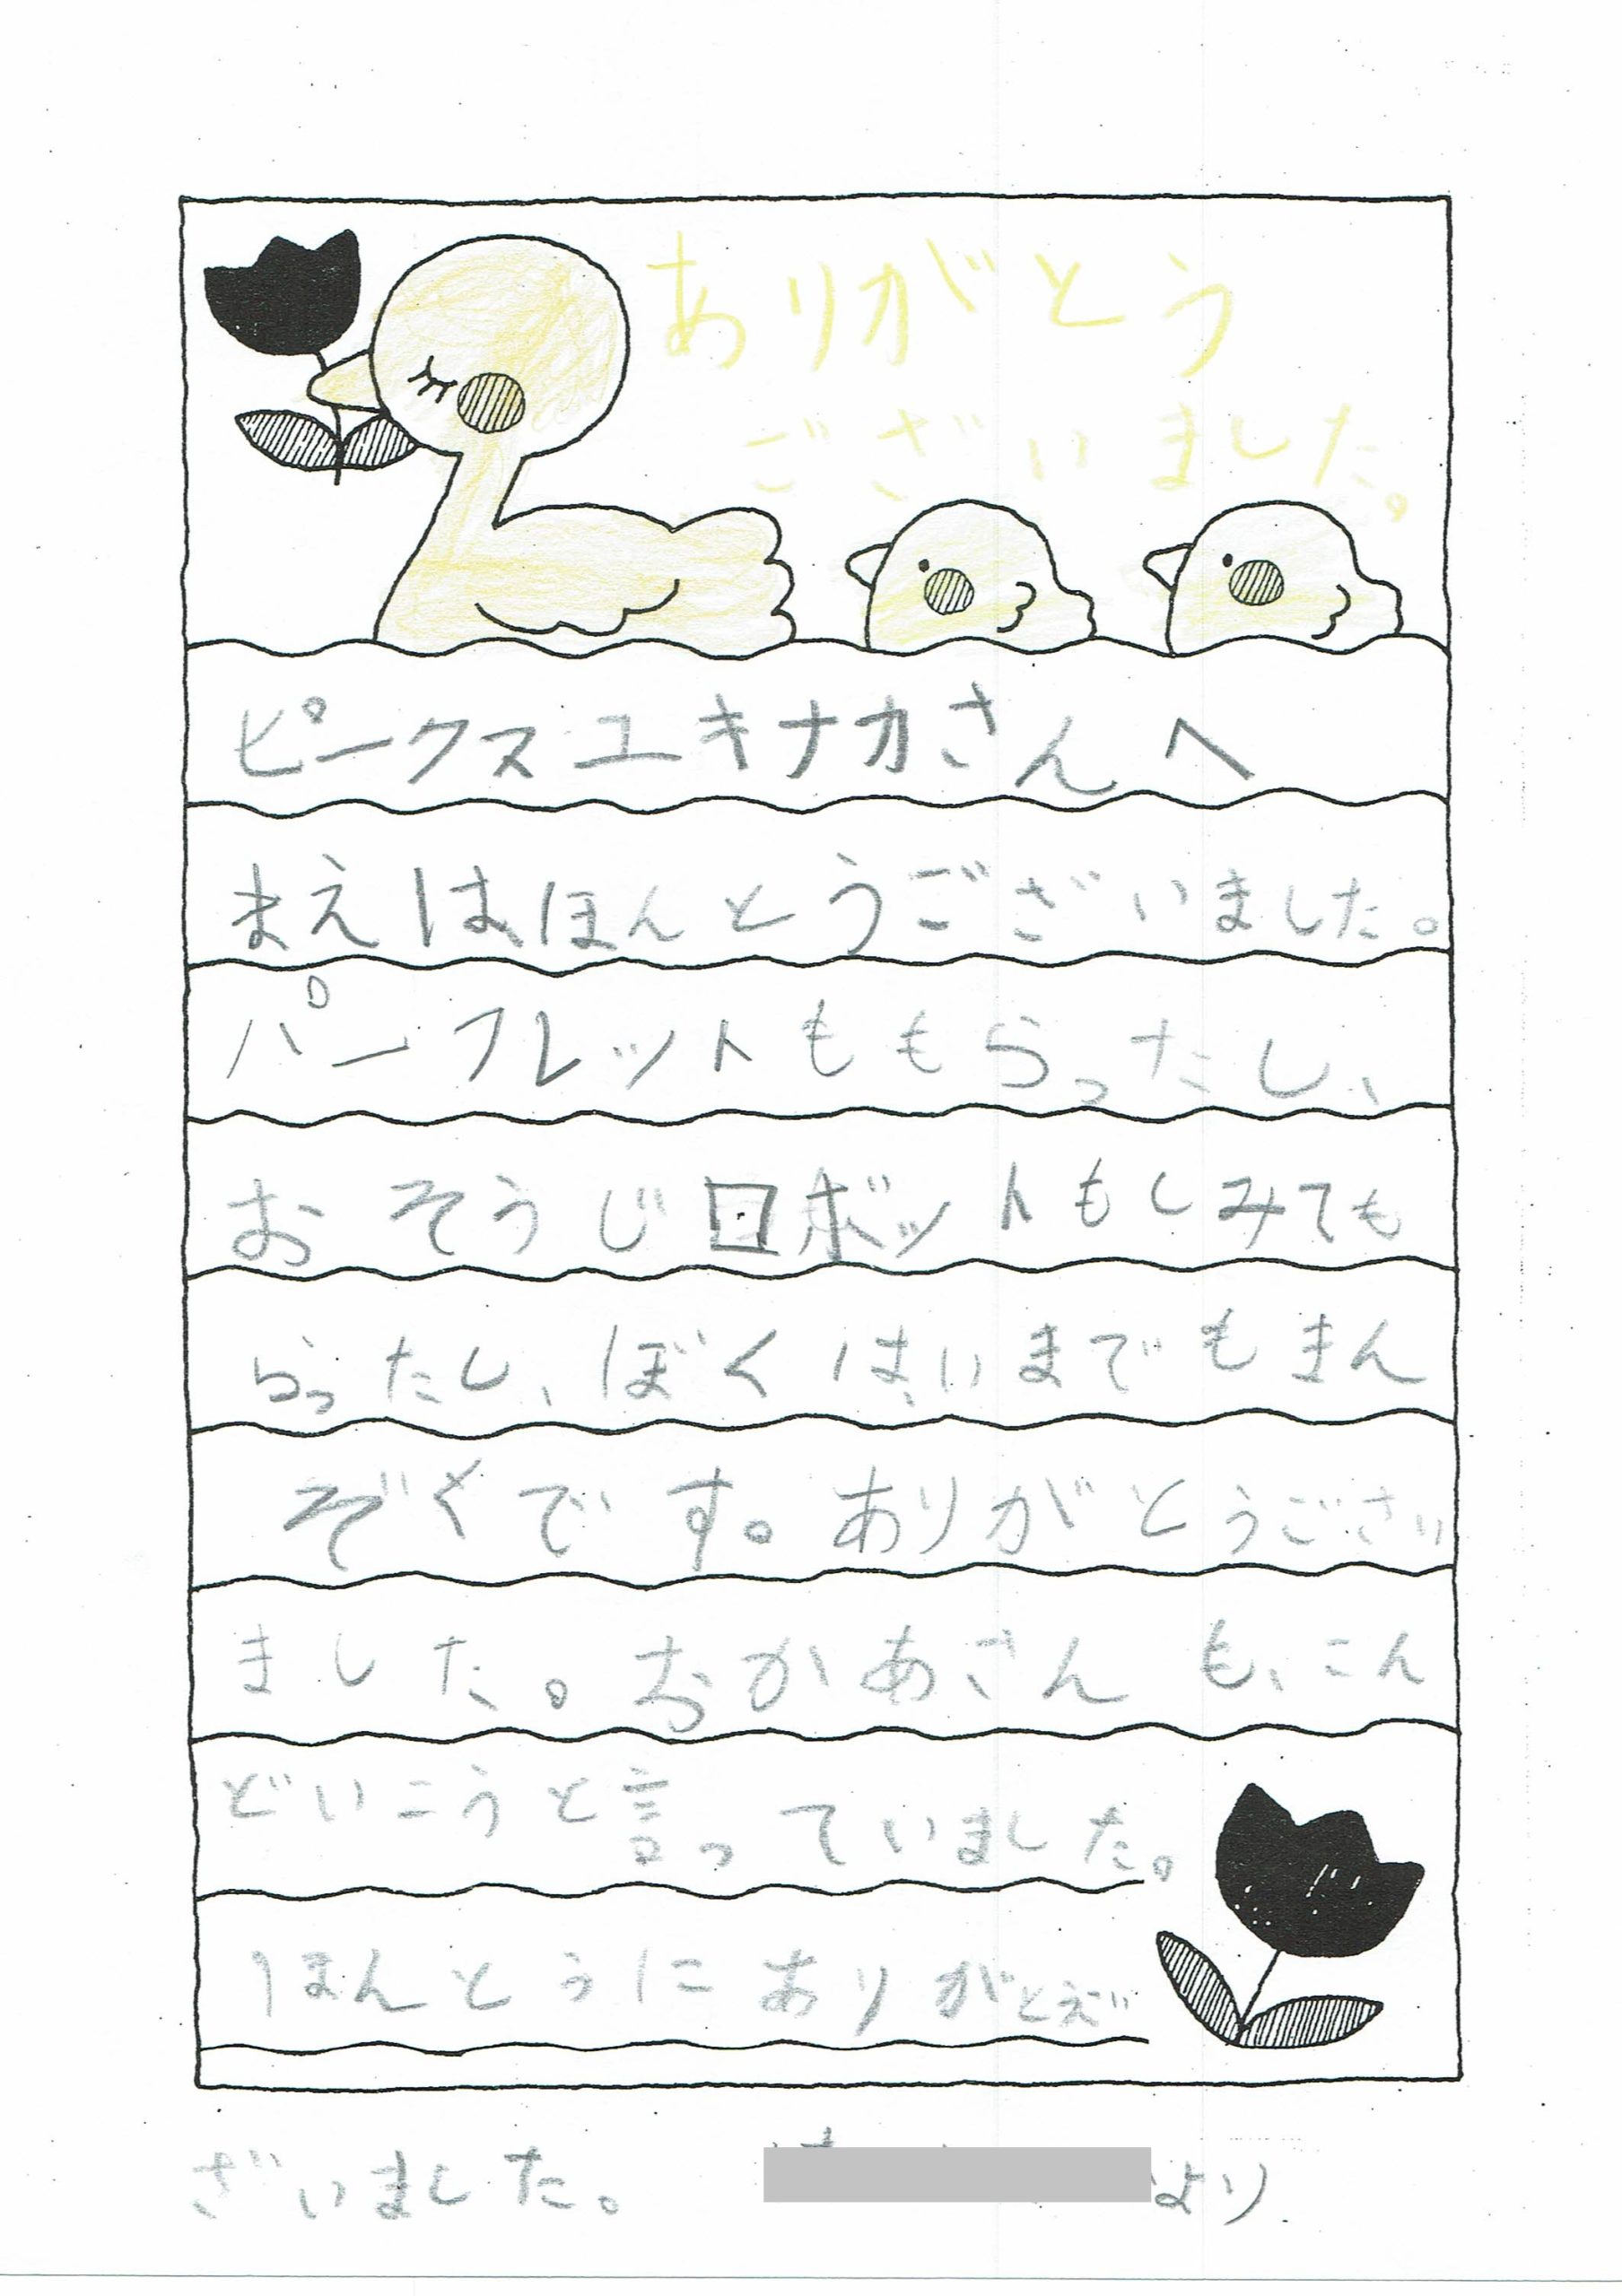 ありがとう
ございました。
ピークスユキナカさんへ
まえは、ほんとうございました。
パーフレットももらったし、
おそうじロボットもしみても
らったし、ぼくは、いまでもまん
ぞくです。ありがとうござい
ました。おかあさんも、こん
どいこうと言っていました。
ほんとうにありがとうご
ざいました。
より